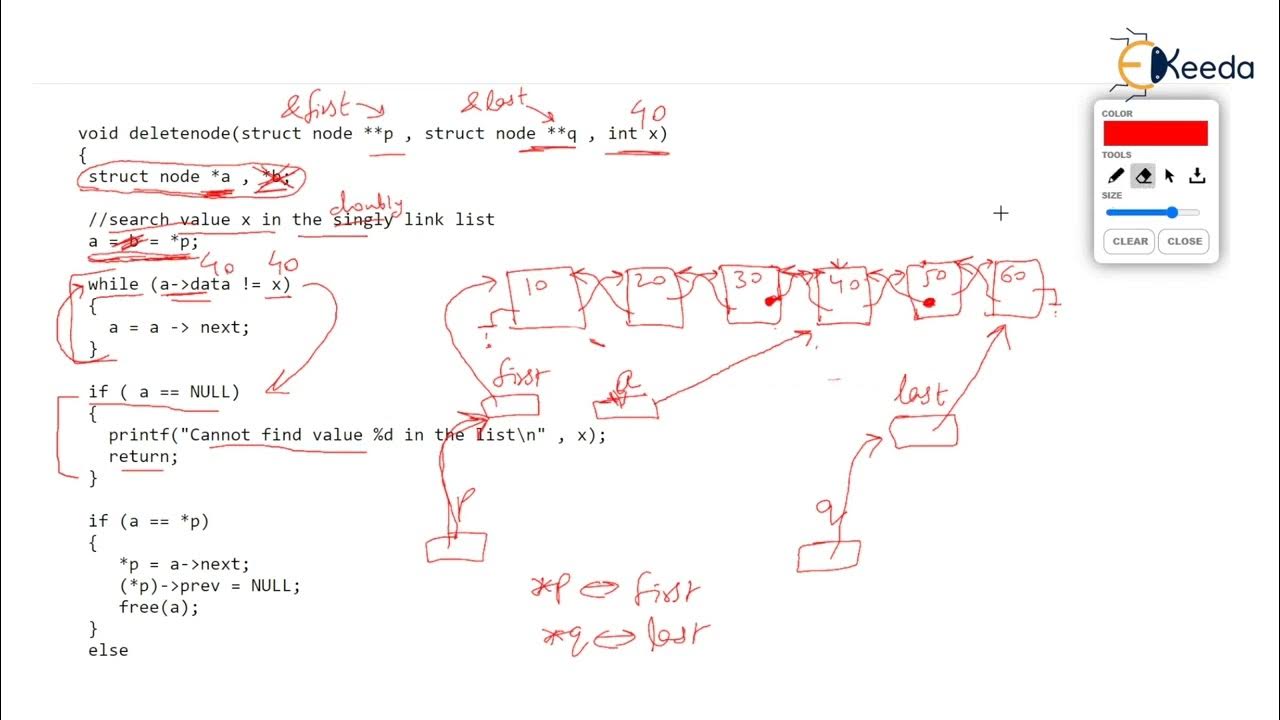 EKeeda
COLOR
TOOLS
SIZE
CLEAR CLOSE
&first &last 40
void deletenode(struct node **p , struct node **q , int x)
{
struct node *a , *b;
doubly
//search value x in the singly link list
a = b = *p;
40 40
while (a->data != x)
{
a = a -> next;
}
10 20 30 40 50 60
first a last
if ( a == NULL)
{
printf("Cannot find value %d in the list\n" , x);
return;
}
p q
if (a == *p)
{
*p = a->next;
(*p)->prev = NULL;
free(a);
}
else
*p ⇔ first
*q ⇔ last